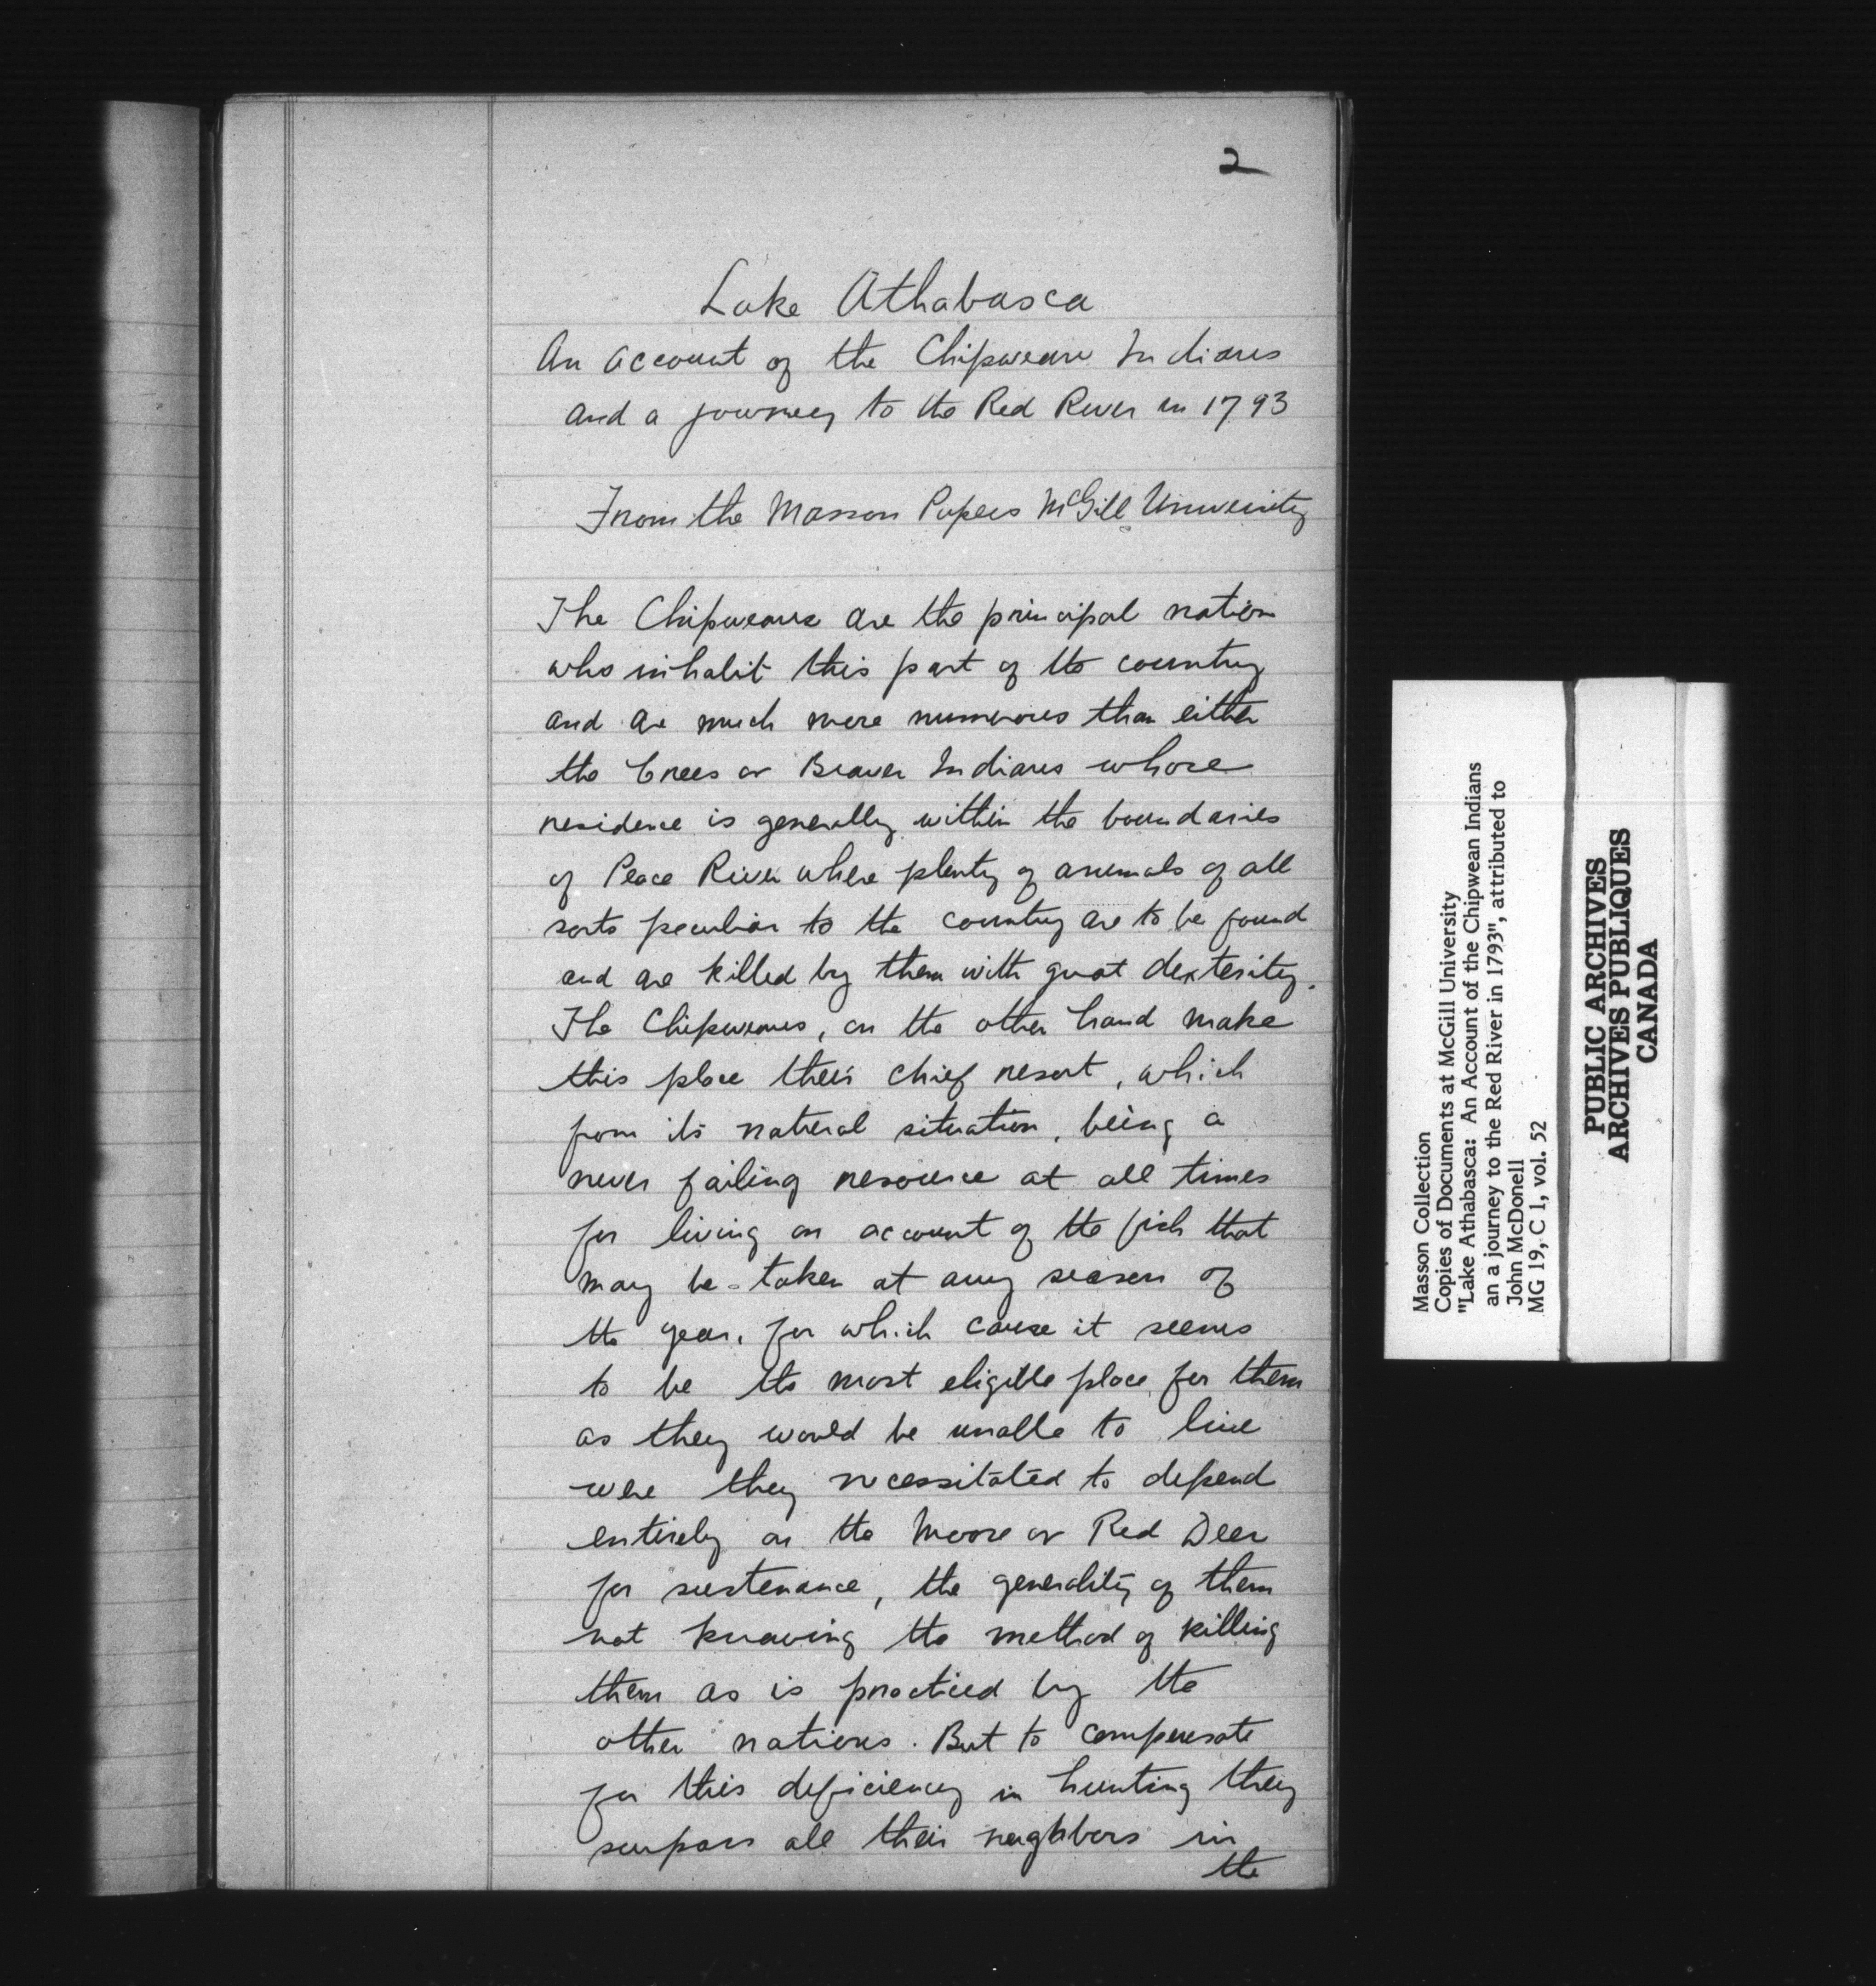 2
Lake Athabasca
An account of the Chipwean Indians
and a journey to the Red River in 1793
From the Masson Papers McGill University
The Chipweans are the principal nation
who inhabit this part of the country
and are much more numerous than either
the Crees or Beaver Indians whose
residence is generally within the boundaries
of Peace River where plenty of animals of all
sorts peculiar to the country are to be found
and are killed by them with great dexterity.
The Chipweans, on the other hand make
this place their chief resort, which
from its natural situation, being a
never failing resource at all times
for living on account of the fish that
may be taken at any season of
the year, for which cause it seems
to be the most eligible place for them
as they would be unable to live
were they necessitated to depend
entirely on the Moose or Red Deer
for sustenance, the generality of them
not knowing the method of killing
them as is practiced by the
other nations. But to compensate
for this deficiency in hunting they
surpass all their neighbors in
the
Masson Collection
Copies of Documents at McGill University
"Lake Athabasca: An Account of the Chipwean Indians
an a journey to the Red River in 1793", attributed to
John McDonell
MG 19, C 1, vol. 52
PUBLIC ARCHIVES
ARCHIVES PUBLIQUES
CANADA